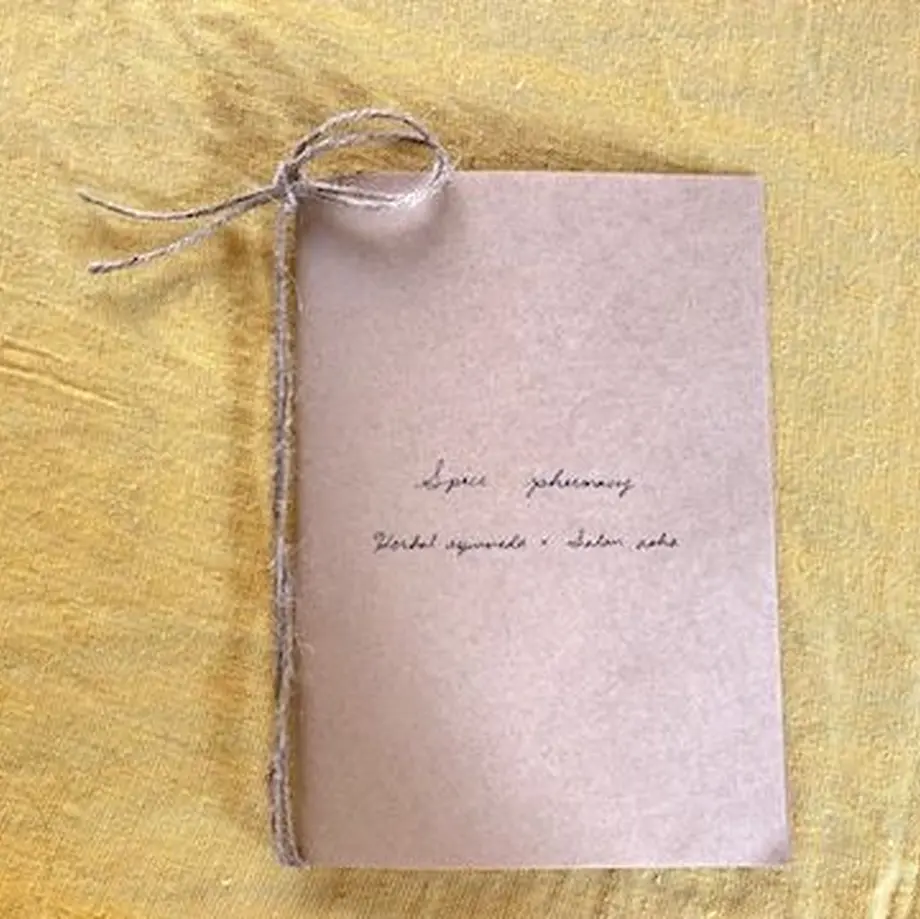 Spice pharmacy
Herbal ayurveda × Salon